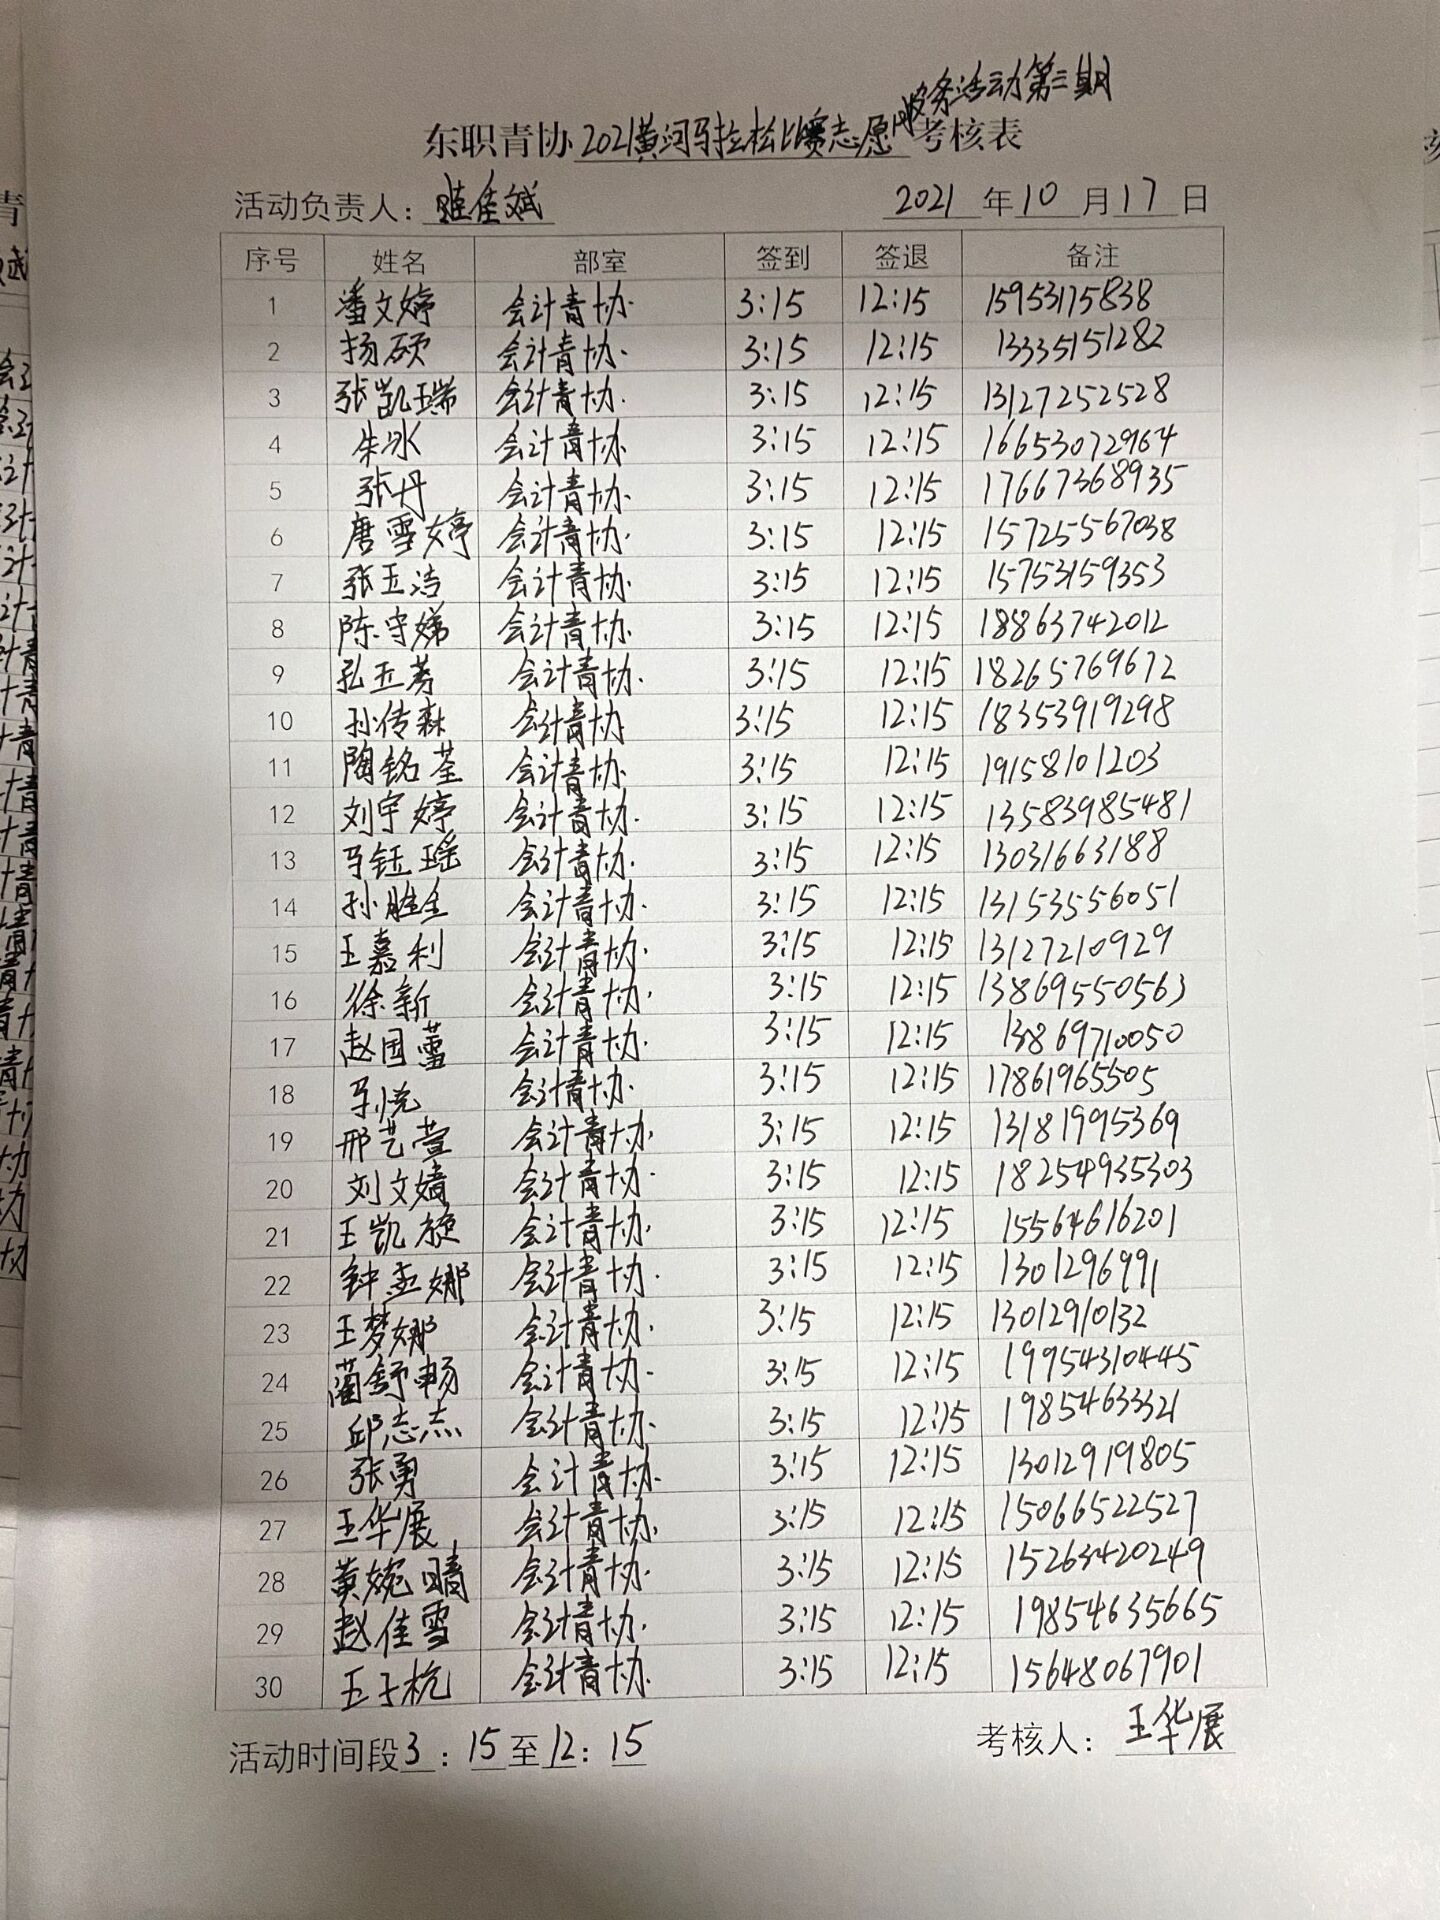 东职青协2021黄河马拉松比赛志愿服务活动第三期考核表
活动负责人: 佳斌 2021 年 10 月 17 日
序号 姓名 部室 签到 签退 备注
1 潘文婷 会计青协 3:15 12:15 15953175838
2 杨硕 会计青协 3:15 12:15 13335151282
3 张凯瑞 会计青协 3:15 12:15 13127252528
4 朱冰 会计青协 3:15 12:15 16653072964
5 张丹 会计青协 3:15 12:15 17667368935
6 唐雪婷 会计青协 3:15 12:15 15725567038
7 张玉洁 会计青协 3:15 12:15 15753159353
8 陈守娣 会计青协 3:15 12:15 18863742012
9 孔玉芬 会计青协 3:15 12:15 18265769672
10 孙传森 会计青协 3:15 12:15 18353919298
11 陶铭荃 会计青协 3:15 12:15 19158101203
12 刘宇婷 会计青协 3:15 12:15 13583985481
13 马钰瑶 会计青协 3:15 12:15 13031663188
14 孙胜全 会计青协 3:15 12:15 13153556051
15 王嘉利 会计青协 3:15 12:15 13127210929
16 徐新 会计青协 3:15 12:15 13869550563
17 赵国蕾 会计青协 3:15 12:15 13869710050
18 马悦 会计青协 3:15 12:15 17861965505
19 邢艺萱 会计青协 3:15 12:15 13181995369
20 刘文嫱 会计青协 3:15 12:15 18254935303
21 王凯旋 会计青协 3:15 12:15 15564616201
22 钟孟娜 会计青协 3:15 12:15 1301296991
23 王梦娜 会计青协 3:15 12:15 13012910132
24 蔺舒畅 会计青协 3:15 12:15 19954310445
25 邱志杰 会计青协 3:15 12:15 19854633321
26 张勇 会计青协 3:15 12:15 13012919805
27 王华展 会计青协 3:15 12:15 15066522527
28 黄婉晴 会计青协 3:15 12:15 15263420249
29 赵佳雪 会计青协 3:15 12:15 19854635665
30 王子杭 会计青协 3:15 12:15 15648067901
活动时间段 3 : 15 至 12 : 15 考核人: 王华展